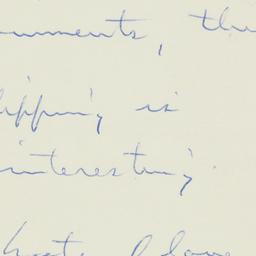 uments, the
lipping is
interesting.
I have